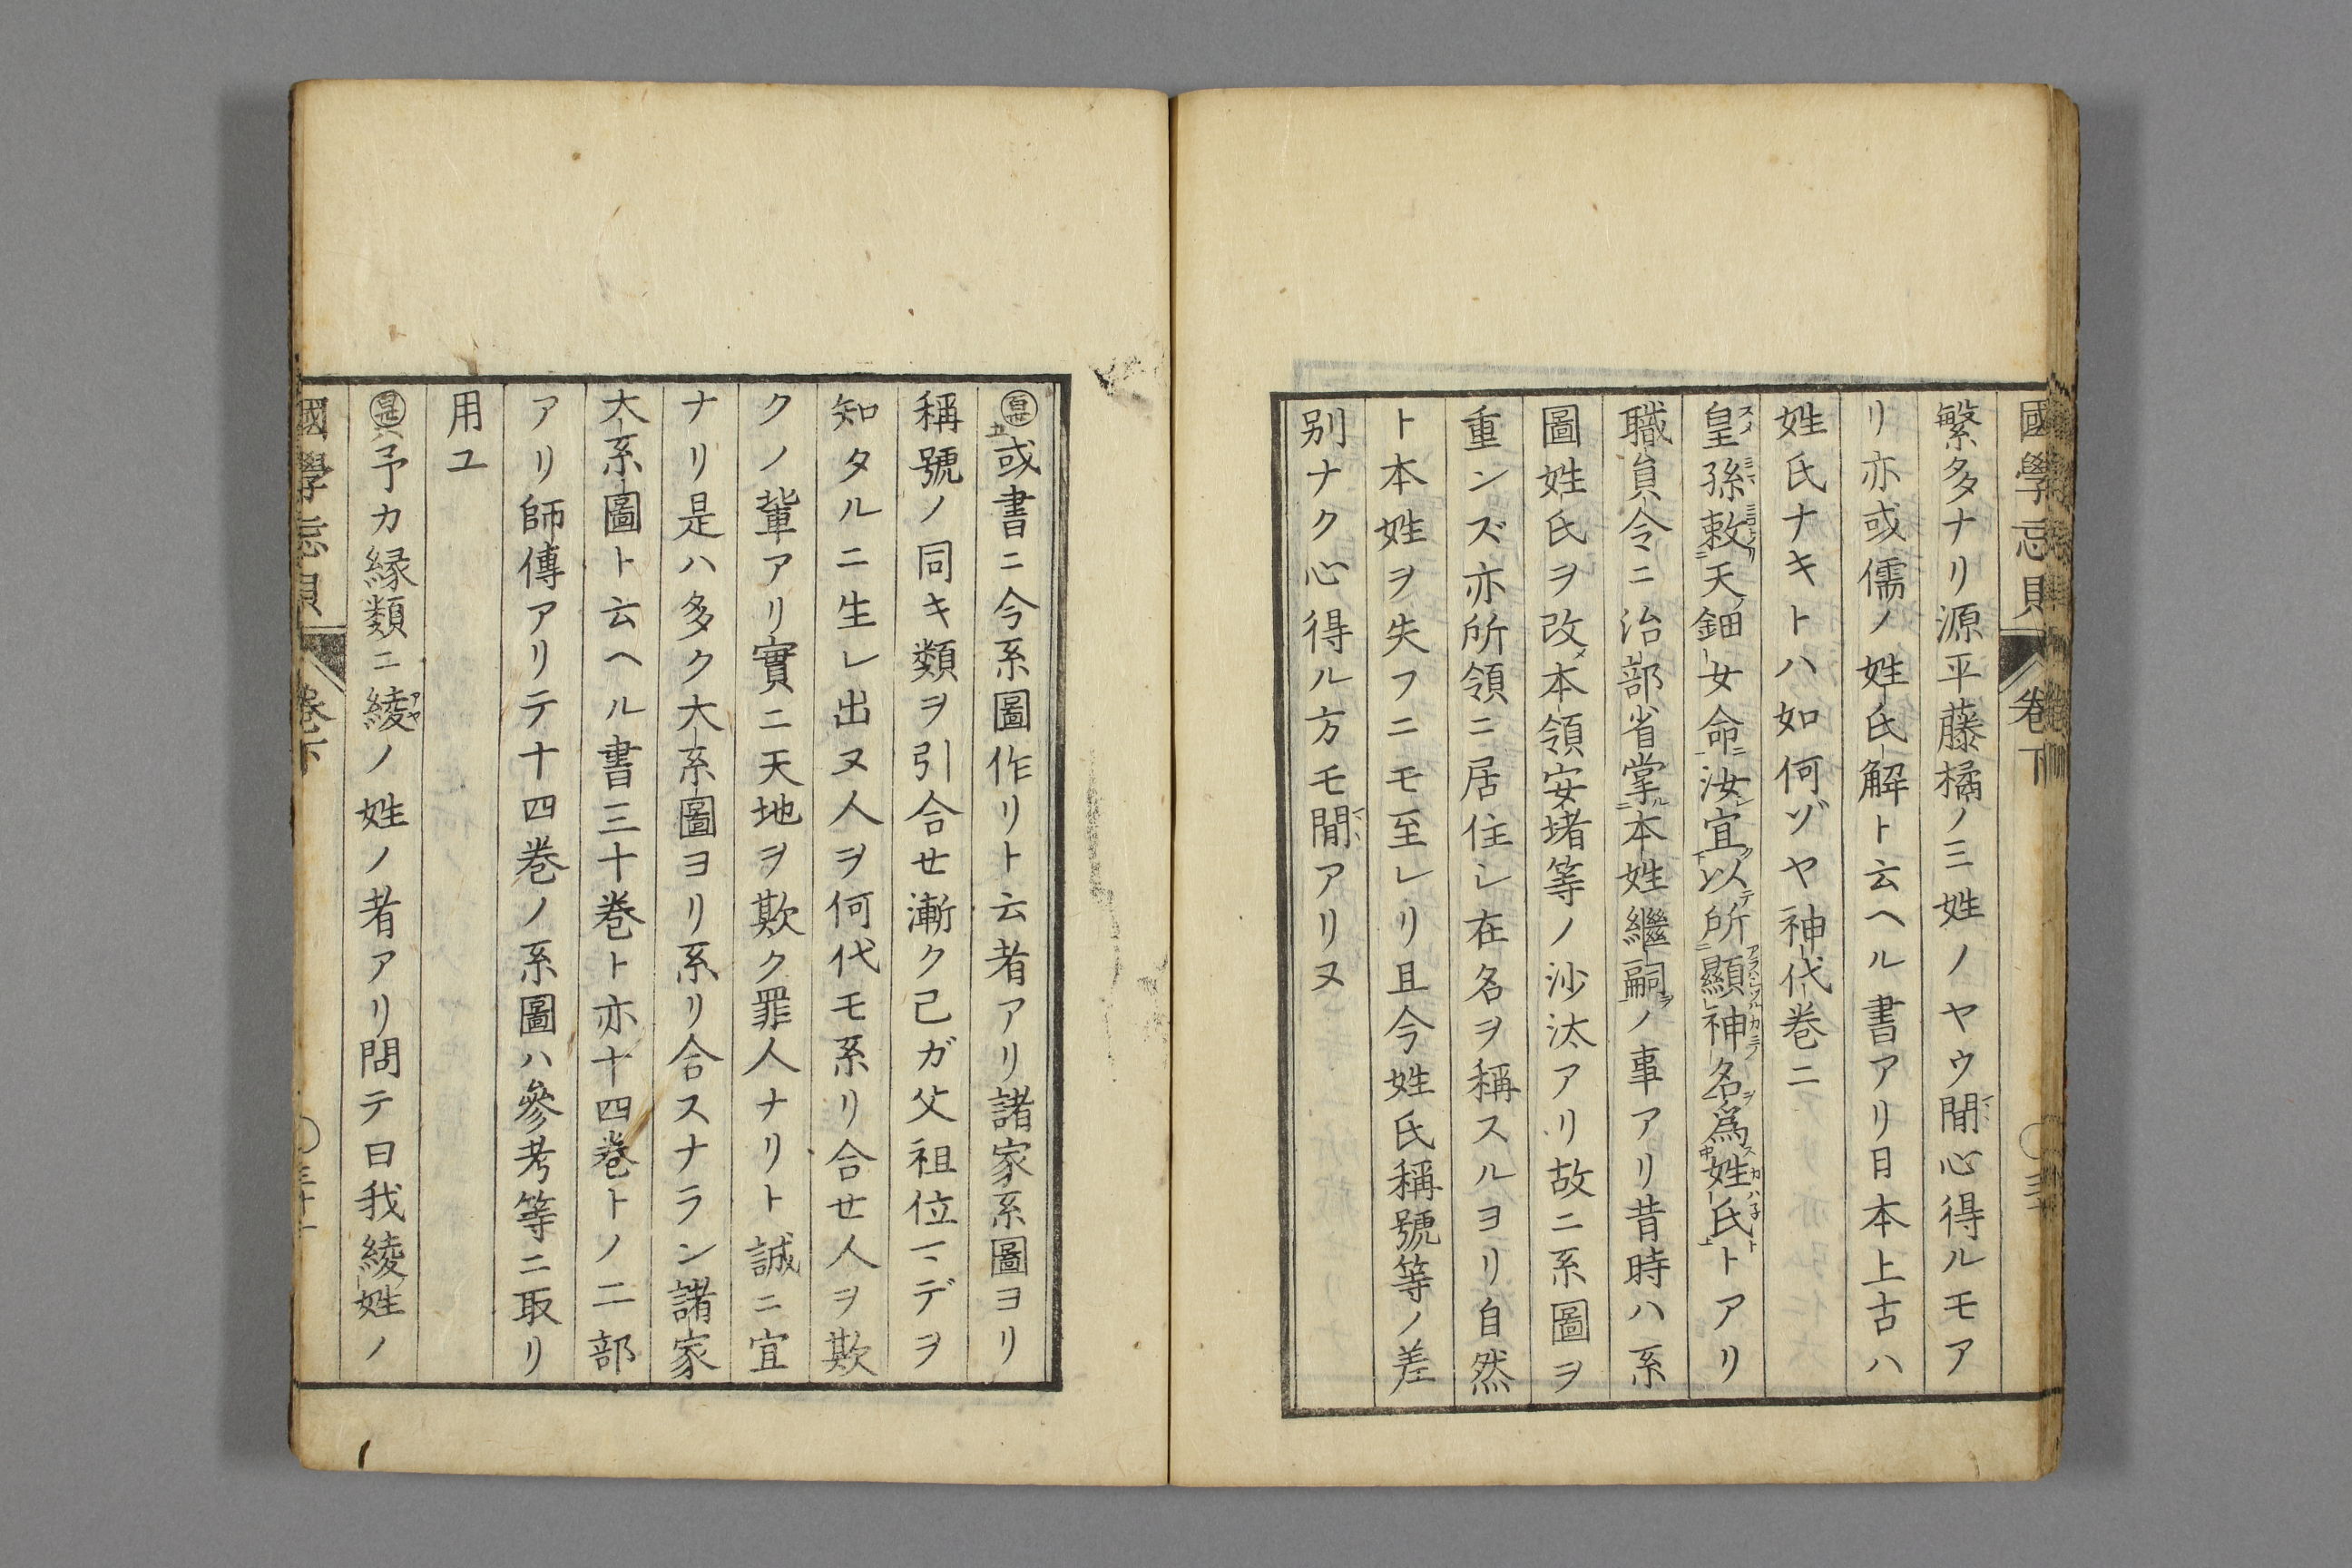 國學忘貝 卷下 三十
繁多ナリ源平藤橘ノ三姓ノヤウ間心得ルモア
リ亦或儒ノ姓氏解ト云ヘル書アリ日本上古ハ
姓氏ナキトハ如何ゾヤ神代巻ニ
皇孫敕天鈿女命汝宜以所顯神名爲姓氏トアリ
職員令ニ治部省掌本姓繼嗣ノ事アリ昔時ハ系
圖姓氏ヲ改メ本領安堵等ノ沙汰アリ故ニ系圖ヲ
重ンズ亦所領ニ居住シ在名ヲ稱スルヨリ自然
ト本姓ヲ失フニモ至レリ且今姓氏稱號等ノ差
別ナク心得ル方モ間アリヌ
或書ニ今系圖作リト云者アリ諸家系圖ヨリ
稱號ノ同キ類ヲ引合せ漸ク己ガ父祖位マデヲ
知タルニ生レ出ヌ人ヲ何代モ系リ合せ人ヲ欺
クノ輩アリ實ニ天地ヲ欺ク罪人ナリト誠ニ宜
ナリ是ハ多ク大系圖ヨリ系リ合スナラン諸家
大系圖ト云ヘル書三十巻ト亦十四巻トノ二部
アリ師傳アリテ十四巻ノ系圖ハ參考等ニ取リ
用ユ
予カ縁類ニ綾アヤノ姓ノ者アリ問テ曰我綾姓ノ
國學忘貝 卷下